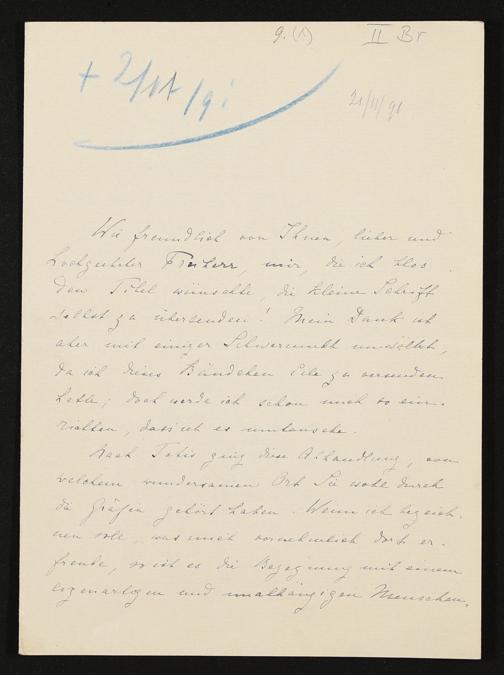 9. (1) II Br
+ 2/11/91
21/11/91
Wie freundlich von Ihnen, lieber und
hochgeehrter Freiherr, mir, die ich blos
den Titel wünschte, die kleine Schrift
selbst zu übersenden! Mein Dank ist
aber mit einiger Schwermuth umwölkt,
da ich dieses Bändchen Eile zu versenden
hatte; doch werde ich schon mich so ein-
richten, dass ich es umtausche.
Nach Totis ging diese Abhandlung, von
welchem wundersamen Ort Sie wohl durch
die Gräfin gehört haben. Wenn ich bezeich-
nen soll, was mich vornehmlich dort er-
freute, so ist es die Begegnung mit einem
eigenartigen und unabhängigen Menschen.